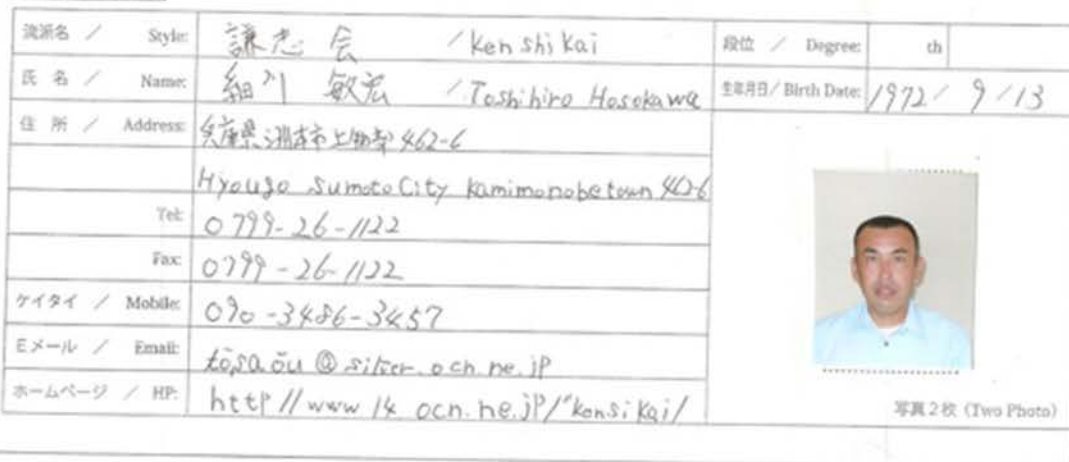 流派名 / Style: 謙志会 / Kenshikai 段位 / Degree: th
氏名 / Name: 細川 敏宏 / Toshihiro Hosokawa 生年月日 / Birth Date: 1972 / 9 / 13
住所 / Address: 兵庫県洲本市上物部 462-6
Hyougo Sumoto City Kamimonobe town 462-6
Tel: 0799-26-1122
Fax: 0799-26-1122
ケイタイ / Mobile: 090-3486-3457
Eメール / Email: @ .ocn.ne.jp
ホームページ / HP: http//www14.ocn.ne.jp/~kensikai/
写真2枚 (Two Photo)